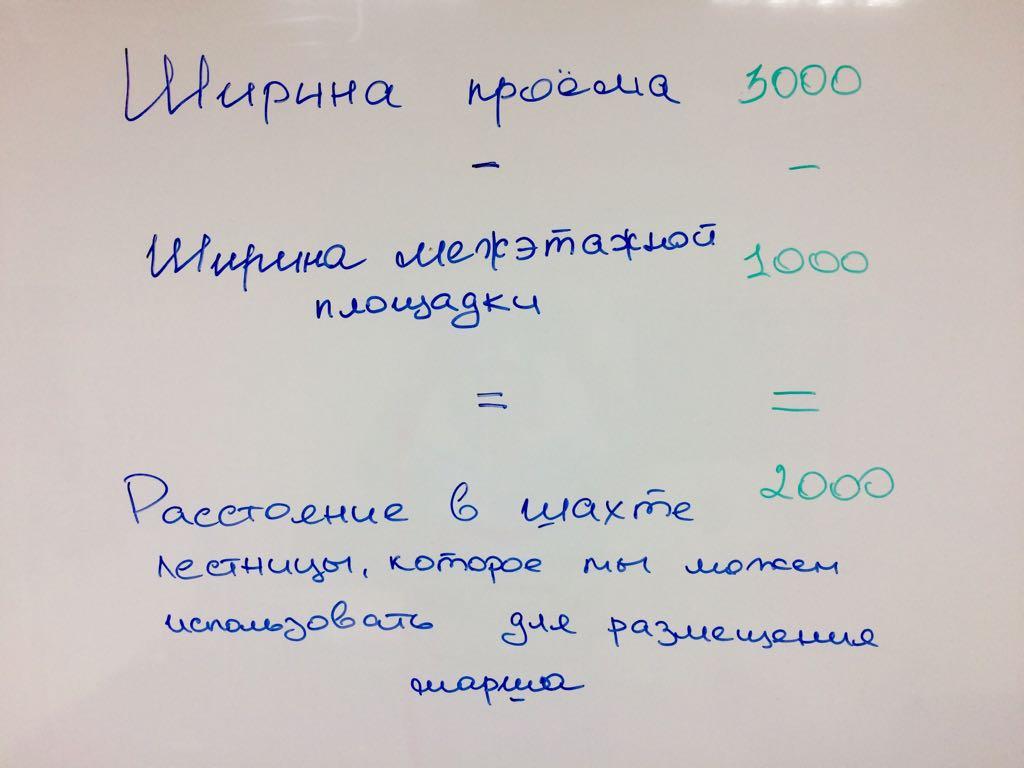 Ширина проёма 3000
- -
Ширина межэтажной 1000
площадки
= =
Расстояние в шахте 2000
лестницы, которое мы можем
использовать для размещения
марша